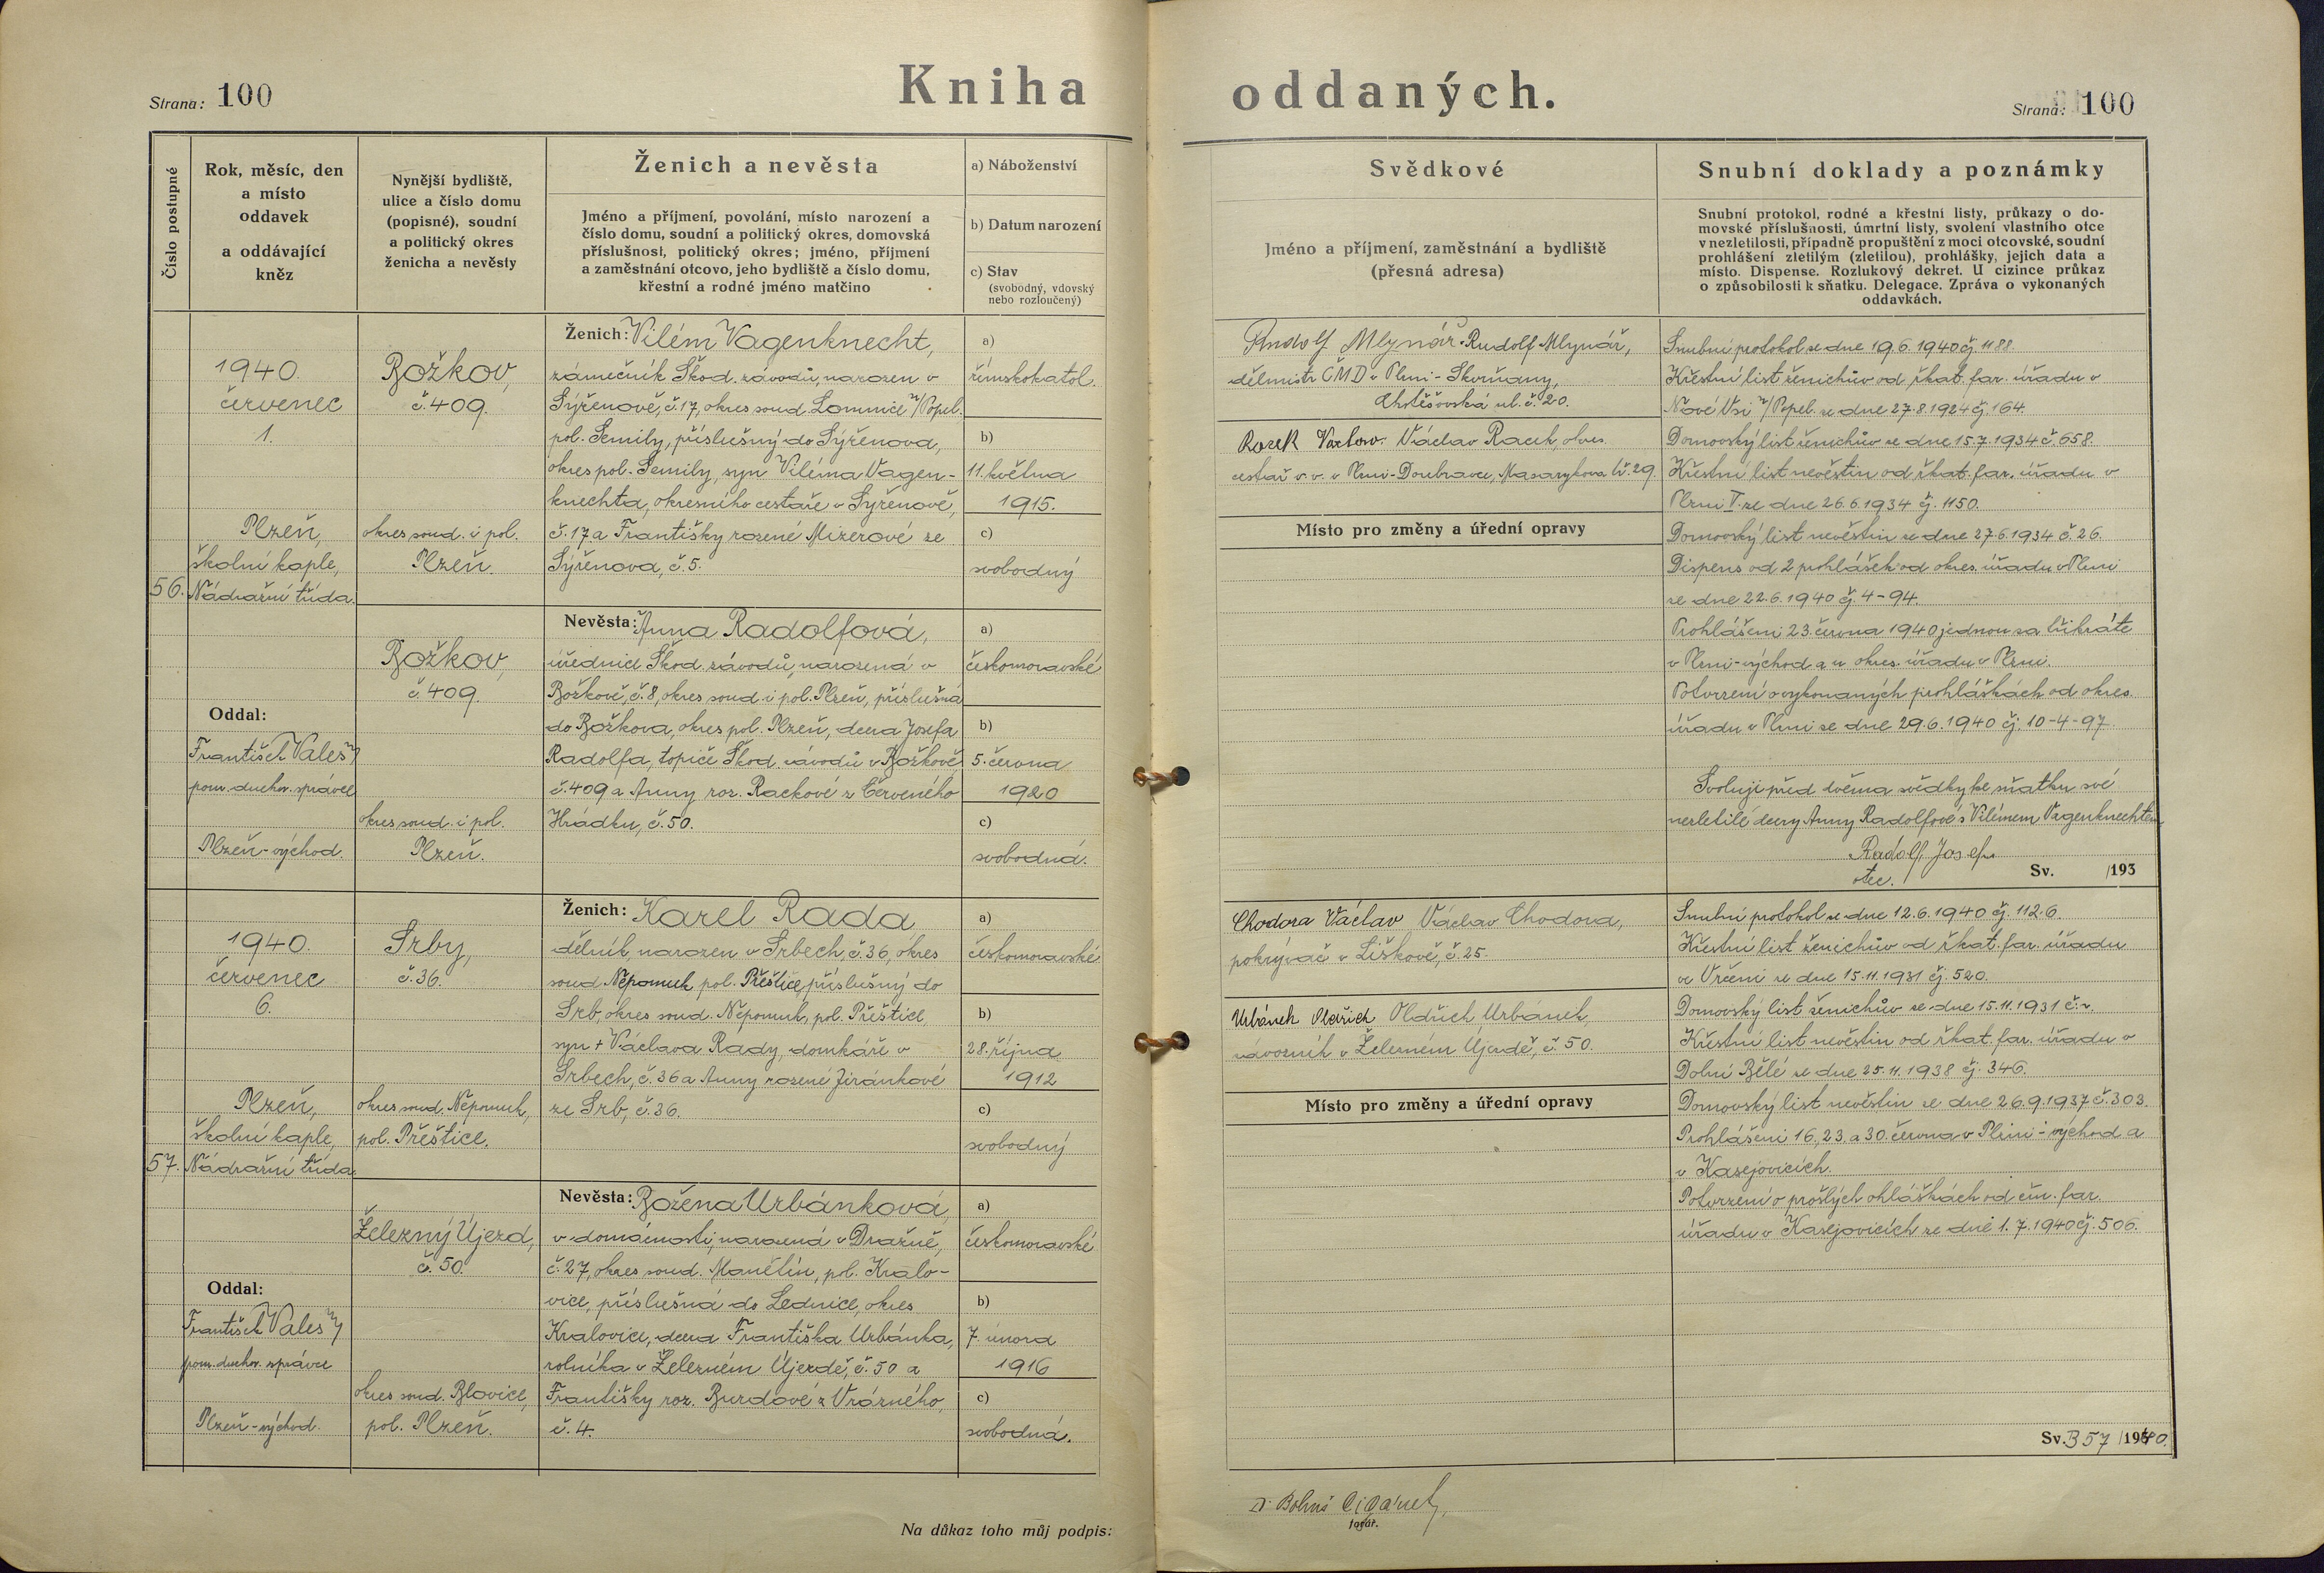 Kniha oddaných.
Strana: 100
Strana: 100
Číslo postupné
Rok, měsíc, den
a místo
oddavek
a oddávající
kněz
Nynější bydliště,
ulice a číslo domu
(popisné), soudní
a politický okres
ženicha a nevěsty
Ženich a nevěsta
Jméno a příjmení, povolání, místo narození a
číslo domu, soudní a politický okres, domovská
příslušnost, politický okres; jméno, příjmení
a zaměstnání otcovo, jeho bydliště a číslo domu,
křestní a rodné jméno matčino
a) Náboženství
b) Datum narození
c) Stav
(svobodný, vdovský
nebo rozloučený)
Svědkové
Jméno a příjmení, zaměstnání a bydliště
(přesná adresa)
Snubní doklady a poznámky
Snubní protokol, rodné a křestní listy, průkazy o do-
movské příslušnosti, úmrtní listy, svolení vlastního otce
v nezletilosti, případně propuštění z moci otcovské, soudní
prohlášení zletilým (zletilou), prohlášky, jejich data a
místo. Dispense. Rozlukový dekret. U cizince průkaz
o způsobilosti k sňatku. Delegace. Zpráva o vykonaných
oddavkách.
56.
1940.
červenec
1.
Plzeň,
školní kaple,
Nádražní třída.
Oddal:
František Valeš
pom. duchov. správce
Plzeň-východ.
Božkov,
č. 409.
okres soud. i pol.
Plzeň.
Ženich: Vilém Vagenknecht,
zámečník Škod. závodů, narozen v
Sýřenově, č. 17, okres soud. Lomnice n/Popel.
pol. Semily, příslušný do Sýřenova,
okres pol. Semily, syn Viléma Vagen-
knechta, okresního cestáře v Sýřenově,
č. 17 a Františky rozené Mizerové ze
Sýřenova, č. 5.
a)
římskokatol.
b)
11. května
1915.
c)
svobodný
Božkov,
č. 409.
okres soud. i pol.
Plzeň.
Nevěsta: Anna Radolfová,
úřednice Škod. závodů, narozená v
Božkově, č. 8, okres soud. i pol. Plzeň, příslušná
do Božkova, okres pol. Plzeň, dcera Josefa
Radolfa, topiče Škod. závodů v Božkově
č. 409 a Anny roz. Rackové z Červeného
Hrádku, č. 50.
a)
českomoravské
b)
5. června
1920
c)
svobodná.
Rudolf Mlynář. Rudolf Mlynář,
dělmistr ČMD v Plzni-Skvrňany,
Chotěšovská ul. č. 20.
Václav
cestář v. v. v Plzni-Doubravce, Masarykova tř. 29.
Místo pro změny a úřední opravy
Snubní protokol ze dne 19.6.1940 čj. 1188.
Křestní list ženichův od řkat. far. úřadu v
Nové Vsi n/Popel. ze dne 27.8.1924 čj. 164.
Domovský list ženichův ze dne 15.7.1934 č. 658.
Křestní list nevěstin od řkat. far. úřadu v
Plzni V. ze dne 26.6.1934 čj. 1150.
Domovský list nevěstin ze dne 27.6.1934 č. 26.
Dispens od 2 prohlášek od okres. úřadu v Plzni
ze dne 22.6.1940 čj. 4-94.
Prohlášeni 23. června 1940 jednou za třikráte
v Plzni-východ a u okres. úřadu v Plzni.
Potvrzení o vykonaných prohláškách od okres.
úřadu v Plzni ze dne 29.6.1940 čj. 10-4-97.
Svoluji před dvěma svědky ke sňatku své
nezletilé dcery Anny Radolfové s Vilémem Vagenknechtem
Radolf Josef
otec.
Sv. /193
57.
1940.
červenec
6.
Plzeň,
školní kaple,
Nádražní třída
Oddal:
František Valeš
pom. duchov. správce
Plzeň-východ.
Srby,
č. 36.
okres soud. Nepomuk,
pol. Přeštice.
Ženich: Karel Rada
dělník, narozen v Srbech, č. 36, okres
soud. Nepomuk, pol. Přeštice, příslušný do
Srb, okres soud. Nepomuk, pol. Přeštice
syn + Václava Rady, domkáře v
Srbech, č. 36 a Anny rozené Jiránkové
ze Srb, č. 36.
a)
českomoravské
b)
28. října
1912
c)
svobodný
Železný Újezd,
č. 50.
okres soud. Blovice,
pol. Plzeň.
Nevěsta: Božena Urbánková,
v domácnosti, narozená v Dražni,
č. 27, okres soud. Manětín, pol. Kralo-
vice, příslušná do Lednice, okres
Kralovice, dcera Františka Urbánka,
rolníka v Železném Újezdě, č. 50 a
Františky roz. Burdové z Vrážného,
č. 4.
a)
českomoravské
b)
7. února
1916
c)
svobodná.
Chodora Václav Václav Chodora,
pokrývač v Liškově, č. 25.
Urbánek Oldřich Oldřich Urbánek,
závozník v Železném Újezdě, č. 50.
Místo pro změny a úřední opravy
Snubní protokol ze dne 12.6.1940 čj. 1126.
Křestní list ženichův od řkat. far. úřadu
ve Vrčeni ze dne 15.11.1931 čj. 520.
Domovský list ženichův ze dne 15.11.1931
Křestní list nevěstin od řkat. far. úřadu v
Dolní Bělé ze dne 25.11.1938 čj. 346.
Domovský list nevěstin ze dne 26.9.1937 č. 303.
Prohlášeni 16., 23. a 30. června v Plzni-východ a
v Kasejovicích.
Potvrzení o prošlých ohláškách od čm. far.
úřadu v Kasejovicích ze dne 1.7.1940 čj. 506.
Sv. 357/1940.
Na důkaz toho můj podpis:
Dr. Bohuš Cigánek,
farář.